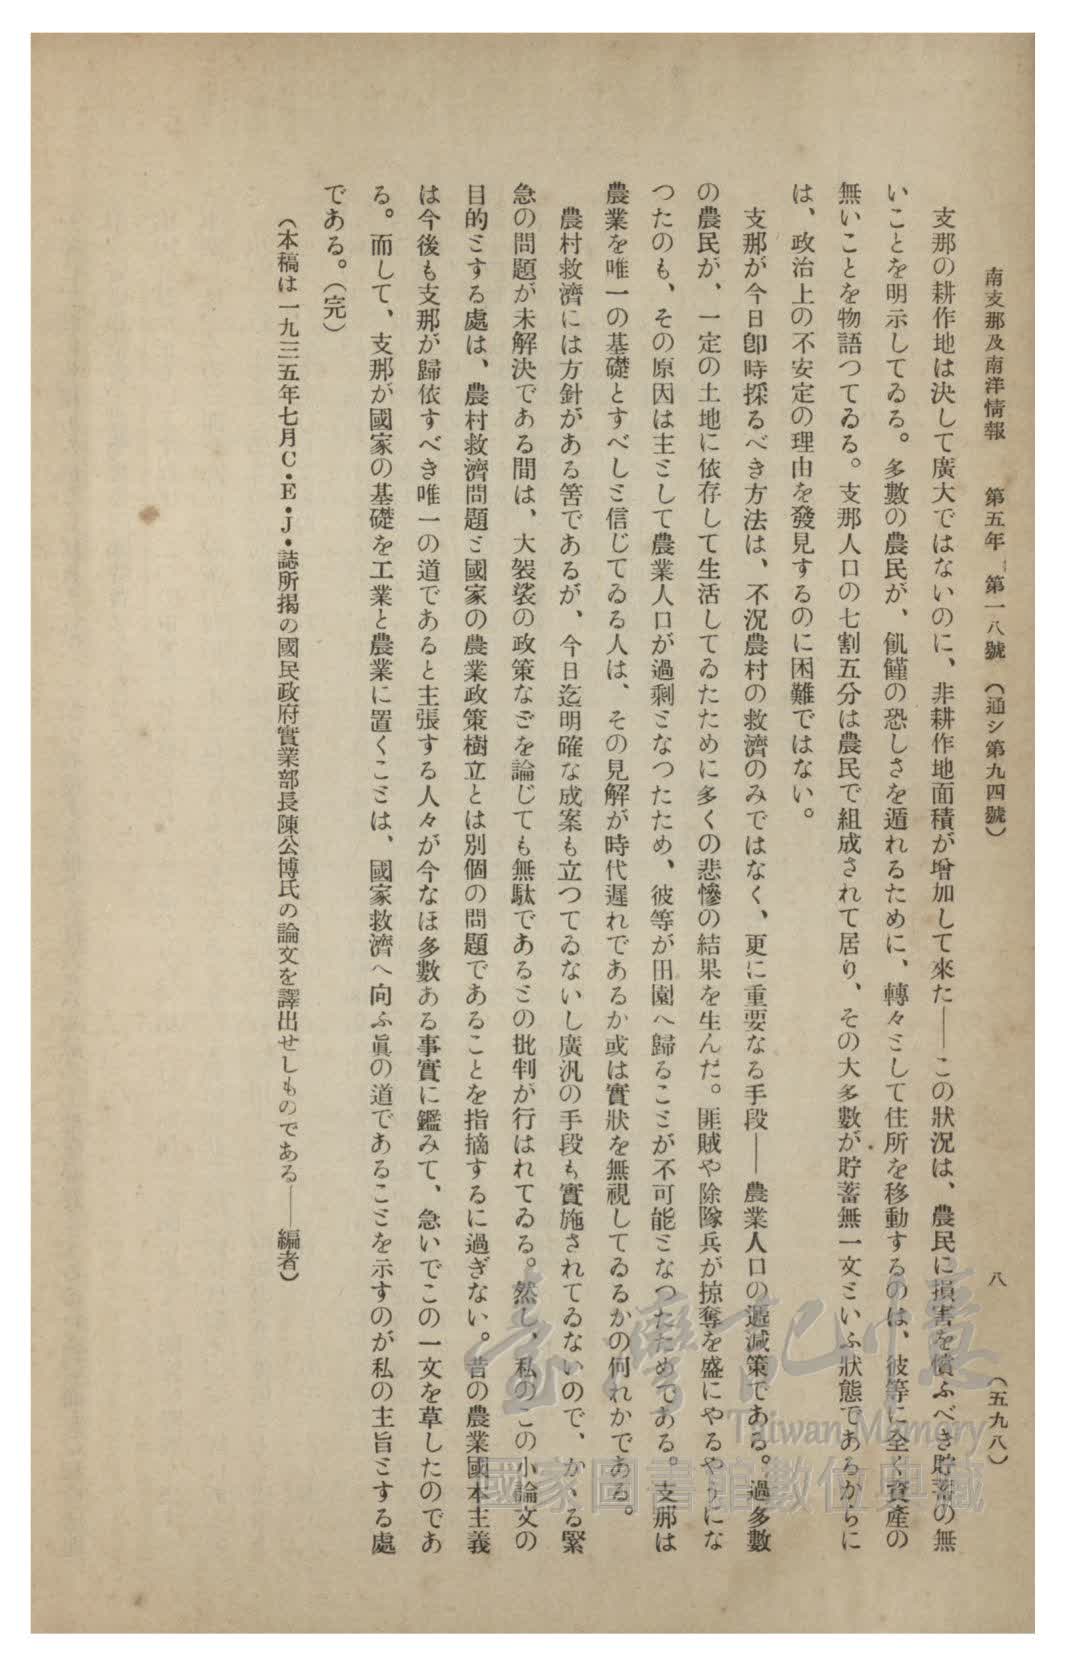 南支那及南洋情報　第五年　第一八號　（通シ第九四號）　八　（五九八）
支那の耕作地は決して廣大ではないのに、非耕作地面積が增加して來た――この狀況は、農民に損害を償ふべき貯蓄の無
いことを明示してゐる。多數の農民が、飢饉の恐しさを遁れるために、轉々として住所を移動するのは、彼等に全く資產の
無いことを物語つてゐる。支那人口の七割五分は農民で組成されて居り、その大多數が貯蓄無一文といふ狀態であるからに
は、政治上の不安定の理由を發見するのに困難ではない。
支那が今日卽時採るべき方法は、不況農村の救濟のみではなく、更に重要なる手段――農業人口の遞減策である。過多數
の農民が、一定の土地に依存して生活してゐたために多くの悲慘の結果を生んだ。匪賊や除隊兵が掠奪を盛にやるやうにな
つたのも、その原因は主として農業人口が過剩となつたため、彼等が田園へ歸ることが不可能となつたためである。支那は
農業を唯一の基礎とすべしと信じてゐる人は、その見解が時代遲れであるか或は實狀を無視してゐるかの何れかである。
農村救濟には方針がある筈であるが、今日迄明確な成案も立つてゐないし廣汎の手段も實施されてゐないので、かゝる緊
急の問題が未解決である間は、大袈裟の政策などを論じても無駄であるとの批判が行はれてゐる。然し、私のこの小論文の
目的とする處は、農村救濟問題と國家の農業政策樹立とは別個の問題であることを指摘するに過ぎない。昔の農業國本主義
は今後も支那が歸依すべき唯一の道であると主張する人々が今なほ多數ある事實に鑑みて、急いでこの一文を草したのであ
る。而して、支那が國家の基礎を工業と農業に置くことは、國家救濟へ向ふ眞の道であることを示すのが私の主旨とする處
である。（完）
（本稿は一九三五年七月C・E・J・誌所揭の國民政府實業部長陳公博氏の論文を譯出せしものである――編者）
臺灣記憶
Taiwan Memory
國家圖書館數位典藏